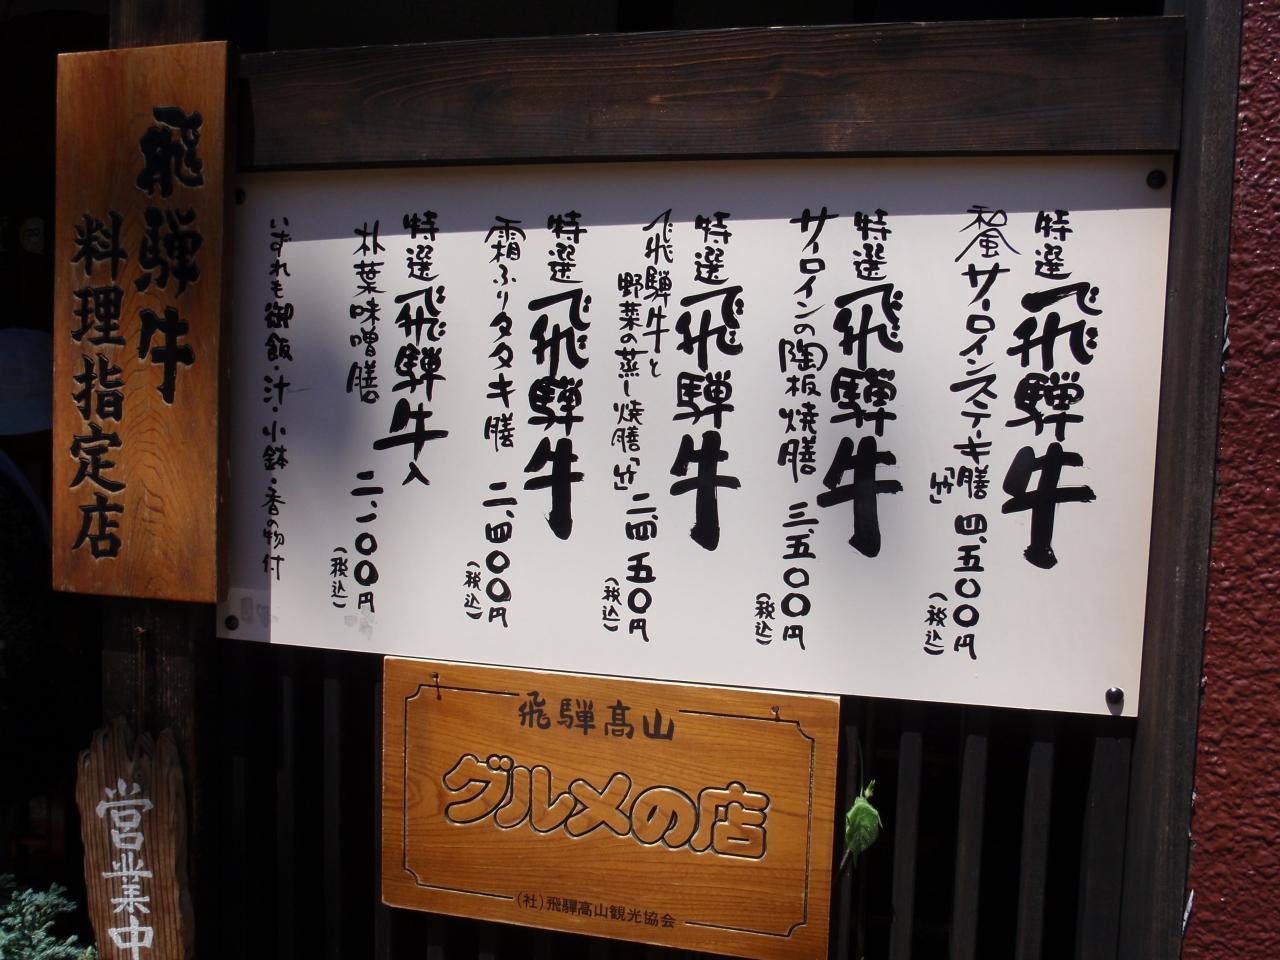 飛騨牛
料理指定店
特選飛騨牛
和風サーロインステーキ膳「竹」 四、五〇〇円(税込)
特選飛騨牛
サーロインの陶板焼膳 三、五〇〇円(税込)
特選飛騨牛
飛騨牛と
野菜の蒸し焼膳「竹」 二、四五〇円(税込)
特選飛騨牛
霜ふりタタキ膳 二、四〇〇円(税込)
特選飛騨牛入
朴葉味噌膳 二、一〇〇円(税込)
いずれも御飯・汁・小鉢・香の物付
飛騨高山
グルメの店
(社)飛騨高山観光協会
営業中